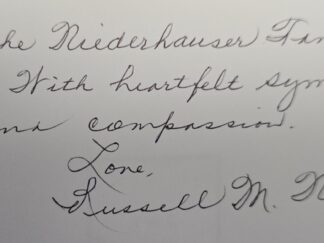 he Niederhauser Fam
With heartfelt sym
and compassion.
Love,
Russell M. N